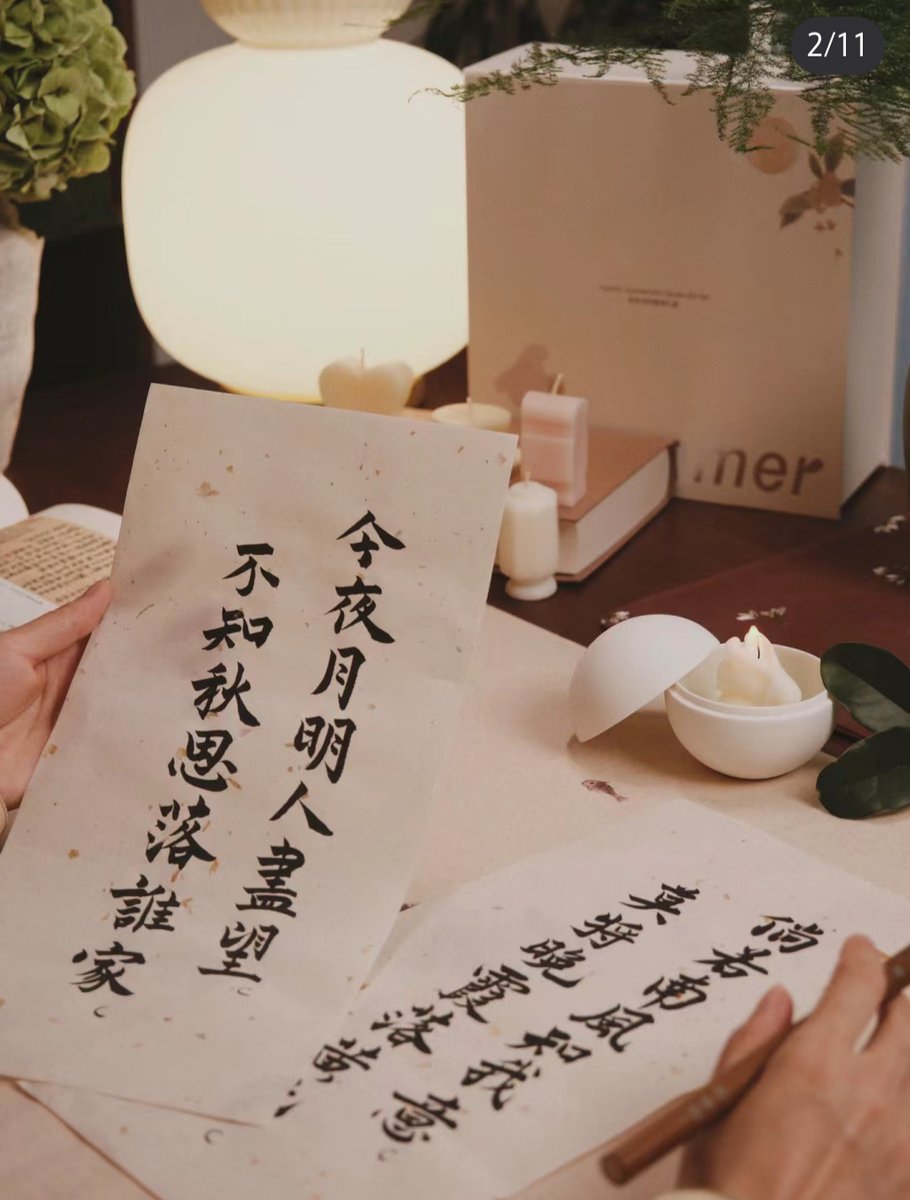 2/11
今夜月明人盡望。
不知秋思落誰家。
倘若南風知我意。
莫將晚霞落黄
ner